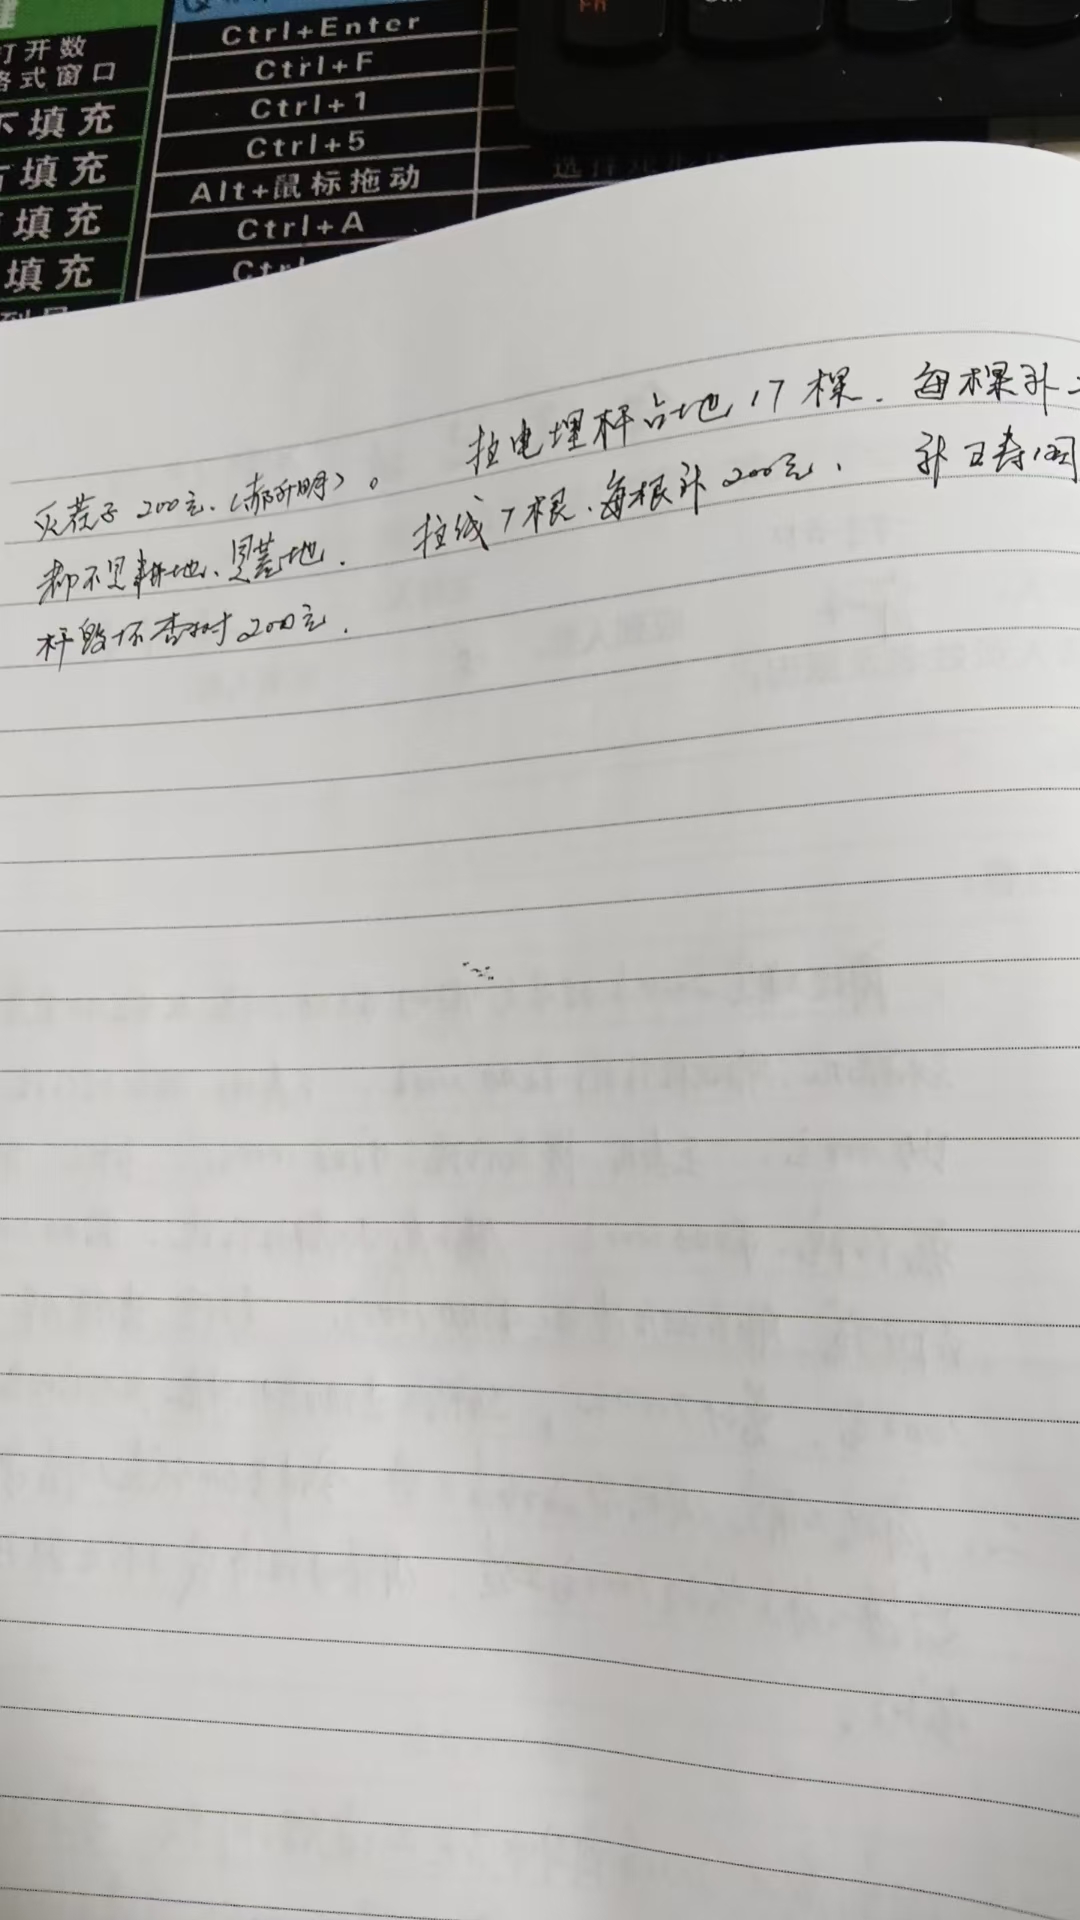 打开数
格式窗口
填充
填充
填充
填充
Ctrl+Enter
Ctrl+F
Ctrl+1
Ctrl+5
Alt+鼠标拖动
Ctrl+A
Fn
灭茬子200元.(郝升明)。 拉电埋杆占地17棵. 每棵补
都不是耕地、是荒地. 拉线7根.每根补200元. 补
杆毁坏杏树200元.